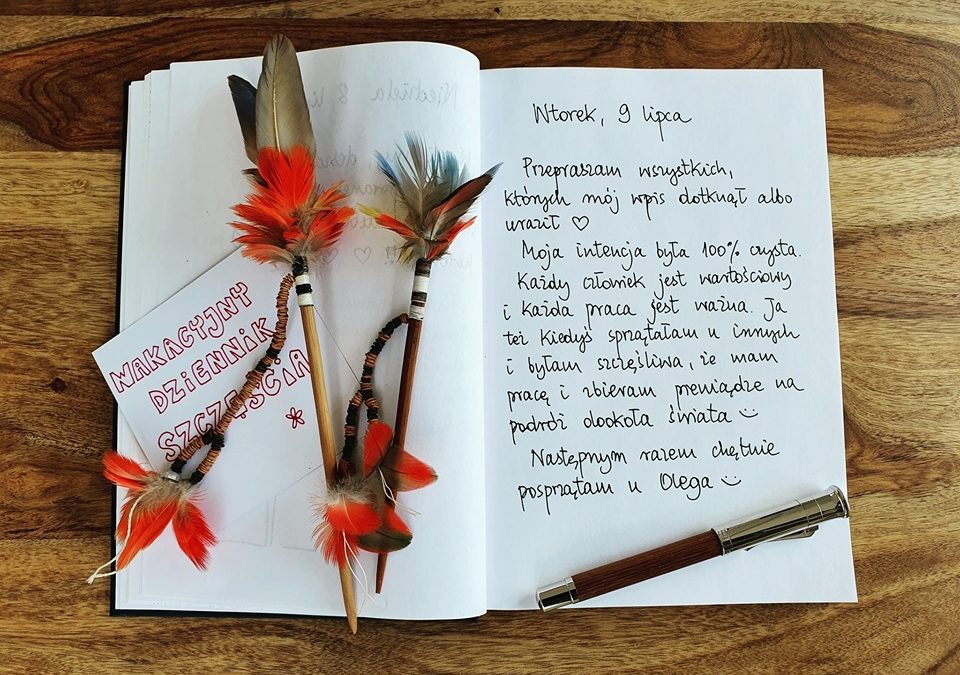 Niedziela 8 li
WAKACYJNY
DZIENNIK
SZCZĘŚCIA
Wtorek, 9 lipca
Przepraszam wszystkich,
których mój wpis dotknął albo
uraził ♡
Moja intencja była 100% czysta.
Każdy człowiek jest wartościowy
i każda praca jest ważna. Ja
też kiedyś sprzątałam u innych
i byłam szczęśliwa, że mam
pracę i zbieram pieniądze na
podróż dookoła świata :)
Następnym razem chętnie
posprzątam u Olega :)